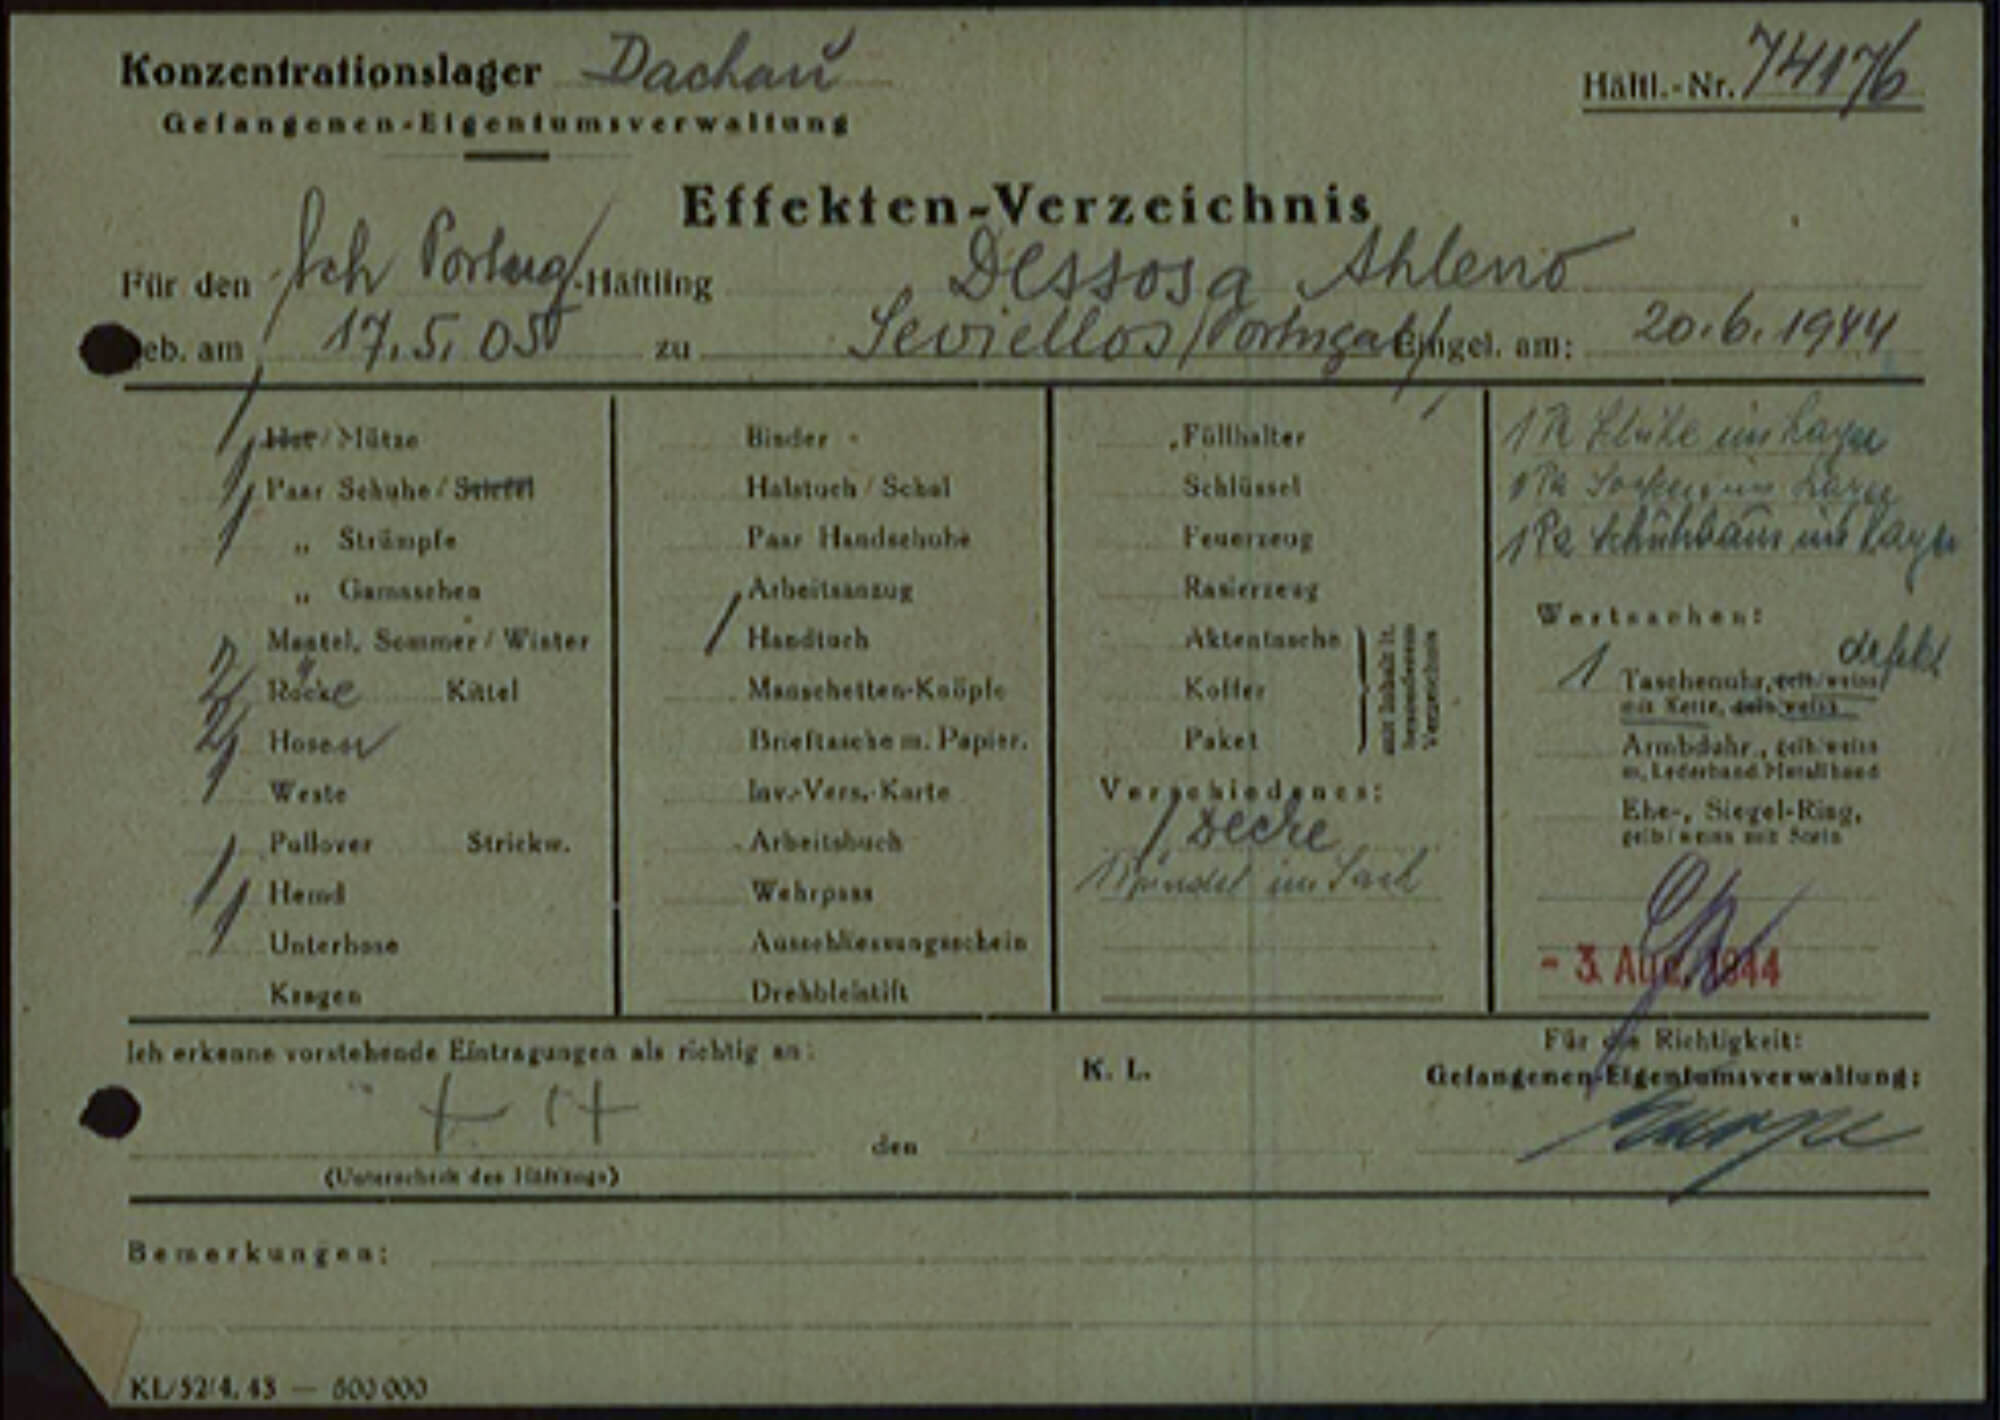 Konzentrationslager Dachau
Häftl.-Nr. 74176
Gefangenen-Eigentumsverwaltung
Effekten-Verzeichnis
Für den Sch Portug-Häftling Dessosa Ahleno
eb. am 17.5.05 zu Seviellos/Portugal/ Eingel. am: 20.6.1944
1 Hut/Mütze
1 Paar Schuhe/Stiefel
1 „ Strümpfe
„ Gamaschen
Mantel, Sommer/Winter
2 Röcke Kittel
2 Hosen
1 Weste
Pullover Strickw.
1 Hemd
1 Unterhose
Kragen
Binder
Halstuch/Schal
Paar Handschuhe
Arbeitsanzug
1 Handtuch
Manschetten-Knöpfe
Brieftasche m. Papier.
Inv.-Vers.-Karte
Arbeitsbuch
Wehrpass
Ausschliessungsschein
Drehbleistift
Füllhalter
Schlüssel
Feuerzeug
Rasierzeug
Aktentasche
Koffer
Paket
mit Inhalt lt.
besonderem
Verzeichnis
Verschiedenes:
1 Decke
1 im Sack
1 Pa ins Lager
1 Pa Socken ins Lager
1 Pa ins Lager
Wertsachen:
defekt
1 Taschenuhr, gelb/weiss
mit Kette, gelb/weiss
Armbduhr., gelb/weiss
m. Lederband/Metallband
Ehe-, Siegel-Ring,
gelb/weiss mit Stein
- 3. Aug. 1944
Ich erkenne vorstehende Eintragungen als richtig an:
K. L.
Für die Richtigkeit:
Gefangenen-Eigentumsverwaltung:
+ + +
den
(Unterschrift des Häftlings)
Bemerkungen:
KL/52/4. 43 — 500 000